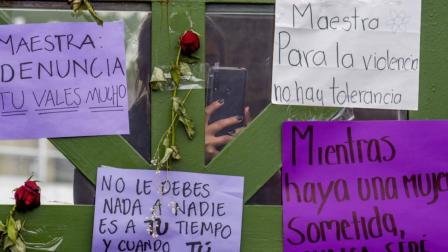 MAESTRA:
DENUNCIA
TU VALES MUCHO
Maestra
Para la violencia
no hay tolerancia
NO LE DEBES
NADA A NADIE
ES A TU TIEMPO
Y CUANDO TÚ
Mientras
haya una mujer
Sometida,